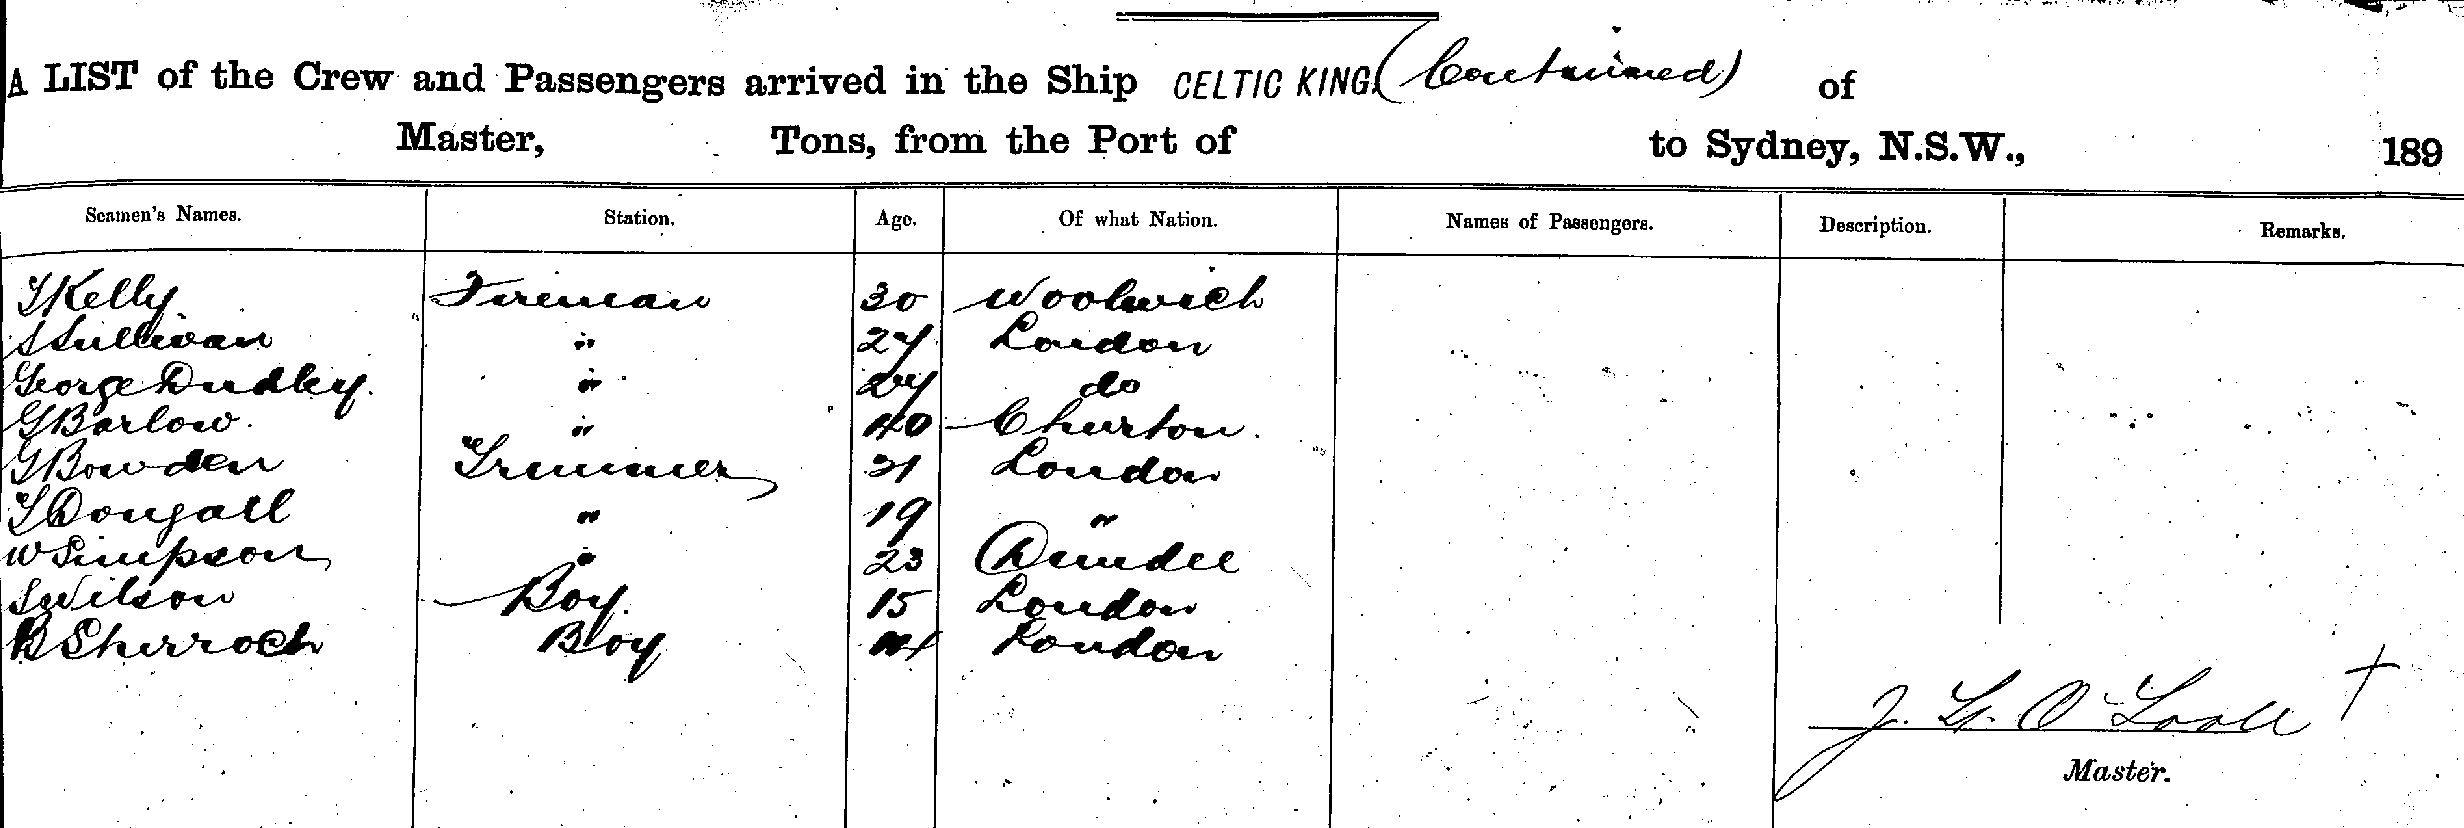 A LIST of the Crew and Passengers arrived in the Ship CELTIC KING (Continued) of
Master, Tons, from the Port of to Sydney, N.S.W., 189
Seamen's Names. Station. Age. Of what Nation. Names of Passengers. Description. Remarks.
T Kelly Fireman 30 Woolwich
S Sullivan " 27 London
George Dudley. " 24 do
G Barlow. " 40 Churton.
G Bowden Trimmer 21 London
T Dougall " 19 "
W Simpson " 23 Dundee
S Wilson Boy. 15 London
B Sherroch Boy London
J. O'Toole
Master.